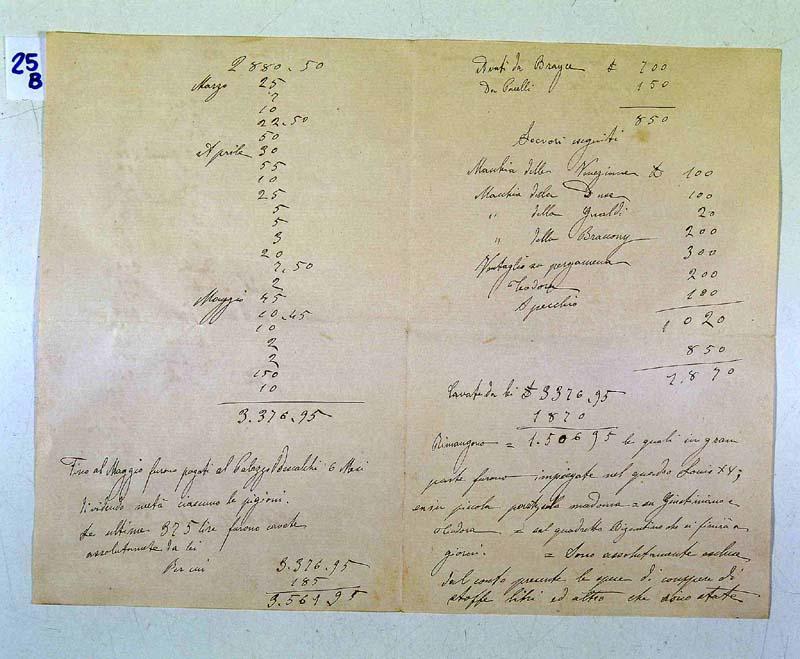 25
B
2880.50
Marzo 25
2
10
22.50
50
Aprile 30
55
10
25
5
5
3
20
2.50
2
Maggio 45
10.45
10
2
2
150
10
3.376.95
Fino al Maggio furono pagati al Palazzo 6 Mesi
dividendo metà ciascuno le pigioni.
Le ultime 375 lire furono
assolutamente da lei
Per cui 3.376.95
185
3.561.95
Avuti da £ 700
Da 150
850
Lavori eseguiti
Macchia della £ 100
Macchia della Duse 100
" della Gualdi 20
" della Bracony 200
Ventaglio su pergamena 300
Teodora 200
Specchio 100
1020
850
1.870
da lei £ 3376.95
1870
Rimangono = 1.50695 le quali in gran
parte furono impiegate nel quadro Louis XV;
piccola madonna = su Giustiniano e
Teodora = sul quadretto Bizantino che si finirà a
giorni. = Sono assolutamente
dal conto presente le spese di compere di
stoffe libri ed altro che sono state